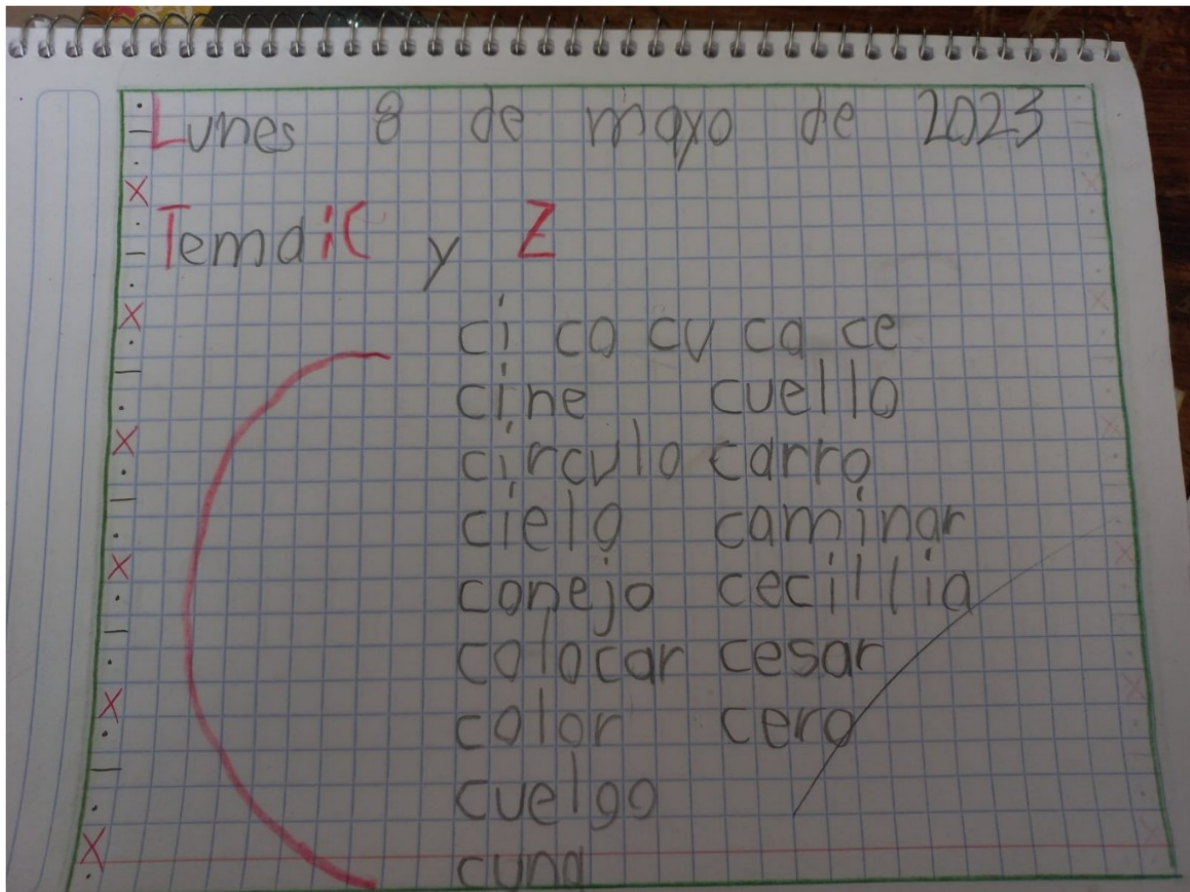 Lunes 8 de mayo de 2023
Tema: C y Z
ci co cu ca ce
cine cuello
circulo carro
cielo caminar
conejo cecillia
colocar cesar
color cero
cuelgo
cuna